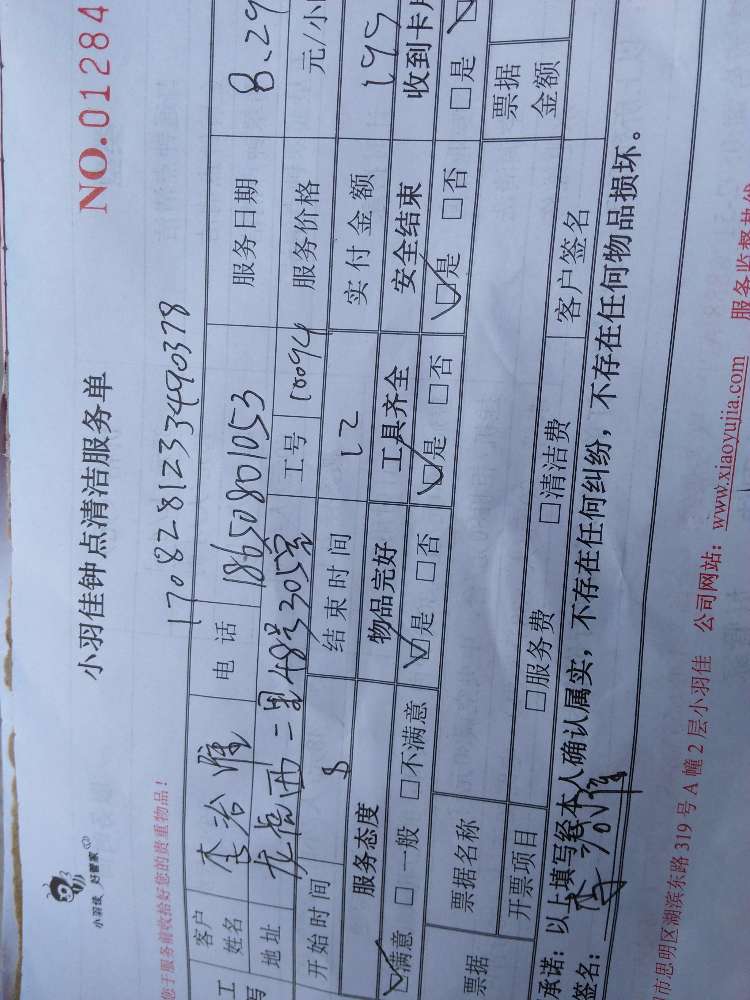 小羽佳 好管家
小羽佳钟点清洁服务单
NO.01284
您于服务前收拾好您的贵重物品!
170828123490378
客户姓名 李治淮 电话 18650801053 服务日期 8.29
地址 西二里48号305室 工号 服务价格 元/小
开始时间 8 结束时间 12 实付金额
服务态度 物品完好 工具齐全 安全结束 收到卡片
☑满意 □一般 □不满意 ☑是 □否 ☑是 □否 ☑是 □否 □是
票据 票据名称 票据金额
开票项目 □服务费 □清洁费 客户签名
承诺:以上填写经本人确认属实,不存在任何纠纷,不存在任何物品损坏。
签名:
市思明区湖滨东路 319 号 A 幢 2 层小羽佳 公司网站:www.xiaoyujia.com 服务监督热线